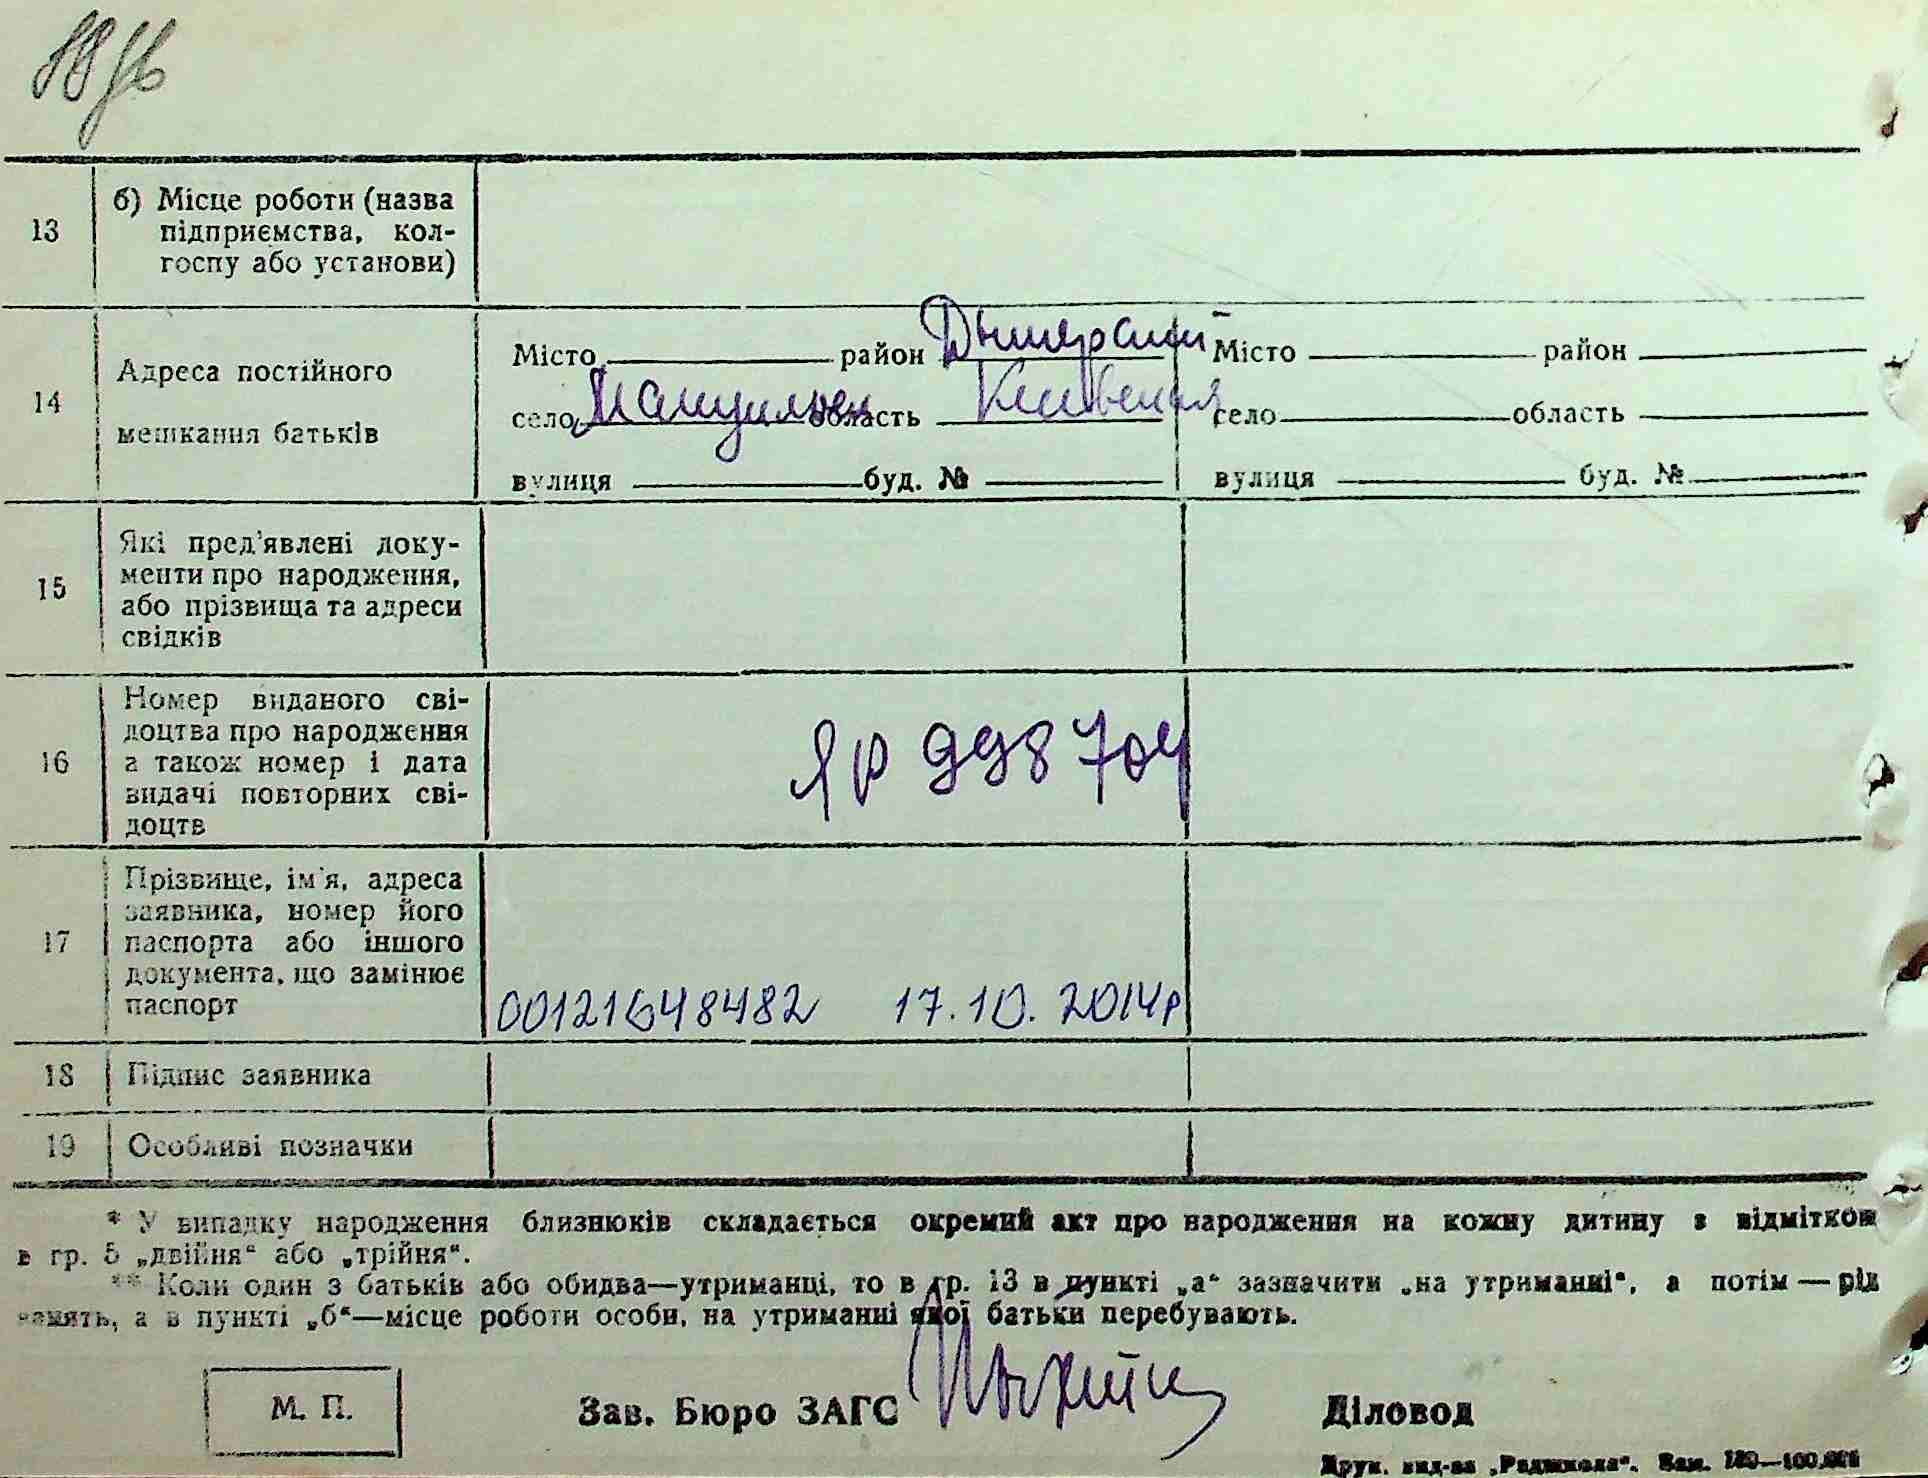 13
б) Місце роботи (назва
підприємства, кол-
госпу або установи)
14
Адреса постійного
мешкання батьків
Місто район Дымерский Місто район
село область Киевская село область
вулиця буд. № вулиця буд. №
15
Які пред'явлені доку-
менти про народження,
або прізвища та адреси
свідків
16
Номер виданого сві-
доцтва про народження
а також номер і дата
видачі повторних сві-
доцтв
ЯР 998704
17
Прізвище, ім'я, адреса
заявника, номер його
паспорта або іншого
документа, що замінює
паспорт
00121648482 17.10.2014р
18 Підпис заявника
19 Особливі позначки
* У випадку народження близнюків складається окремий акт про народження на кожну дитину з відміткою
в гр. 5 „двійня“ або „трійня“.
** Коли один з батьків або обидва—утриманці, то в гр. 13 в пункті „а“ зазначити „на утриманні“, а потім — рід
занять, а в пункті „б“—місце роботи особи, на утриманні якої батьки перебувають.
М. П.
Зав. Бюро ЗАГС
Діловод
Друк. вид-ва „Радшкола“. Зам.